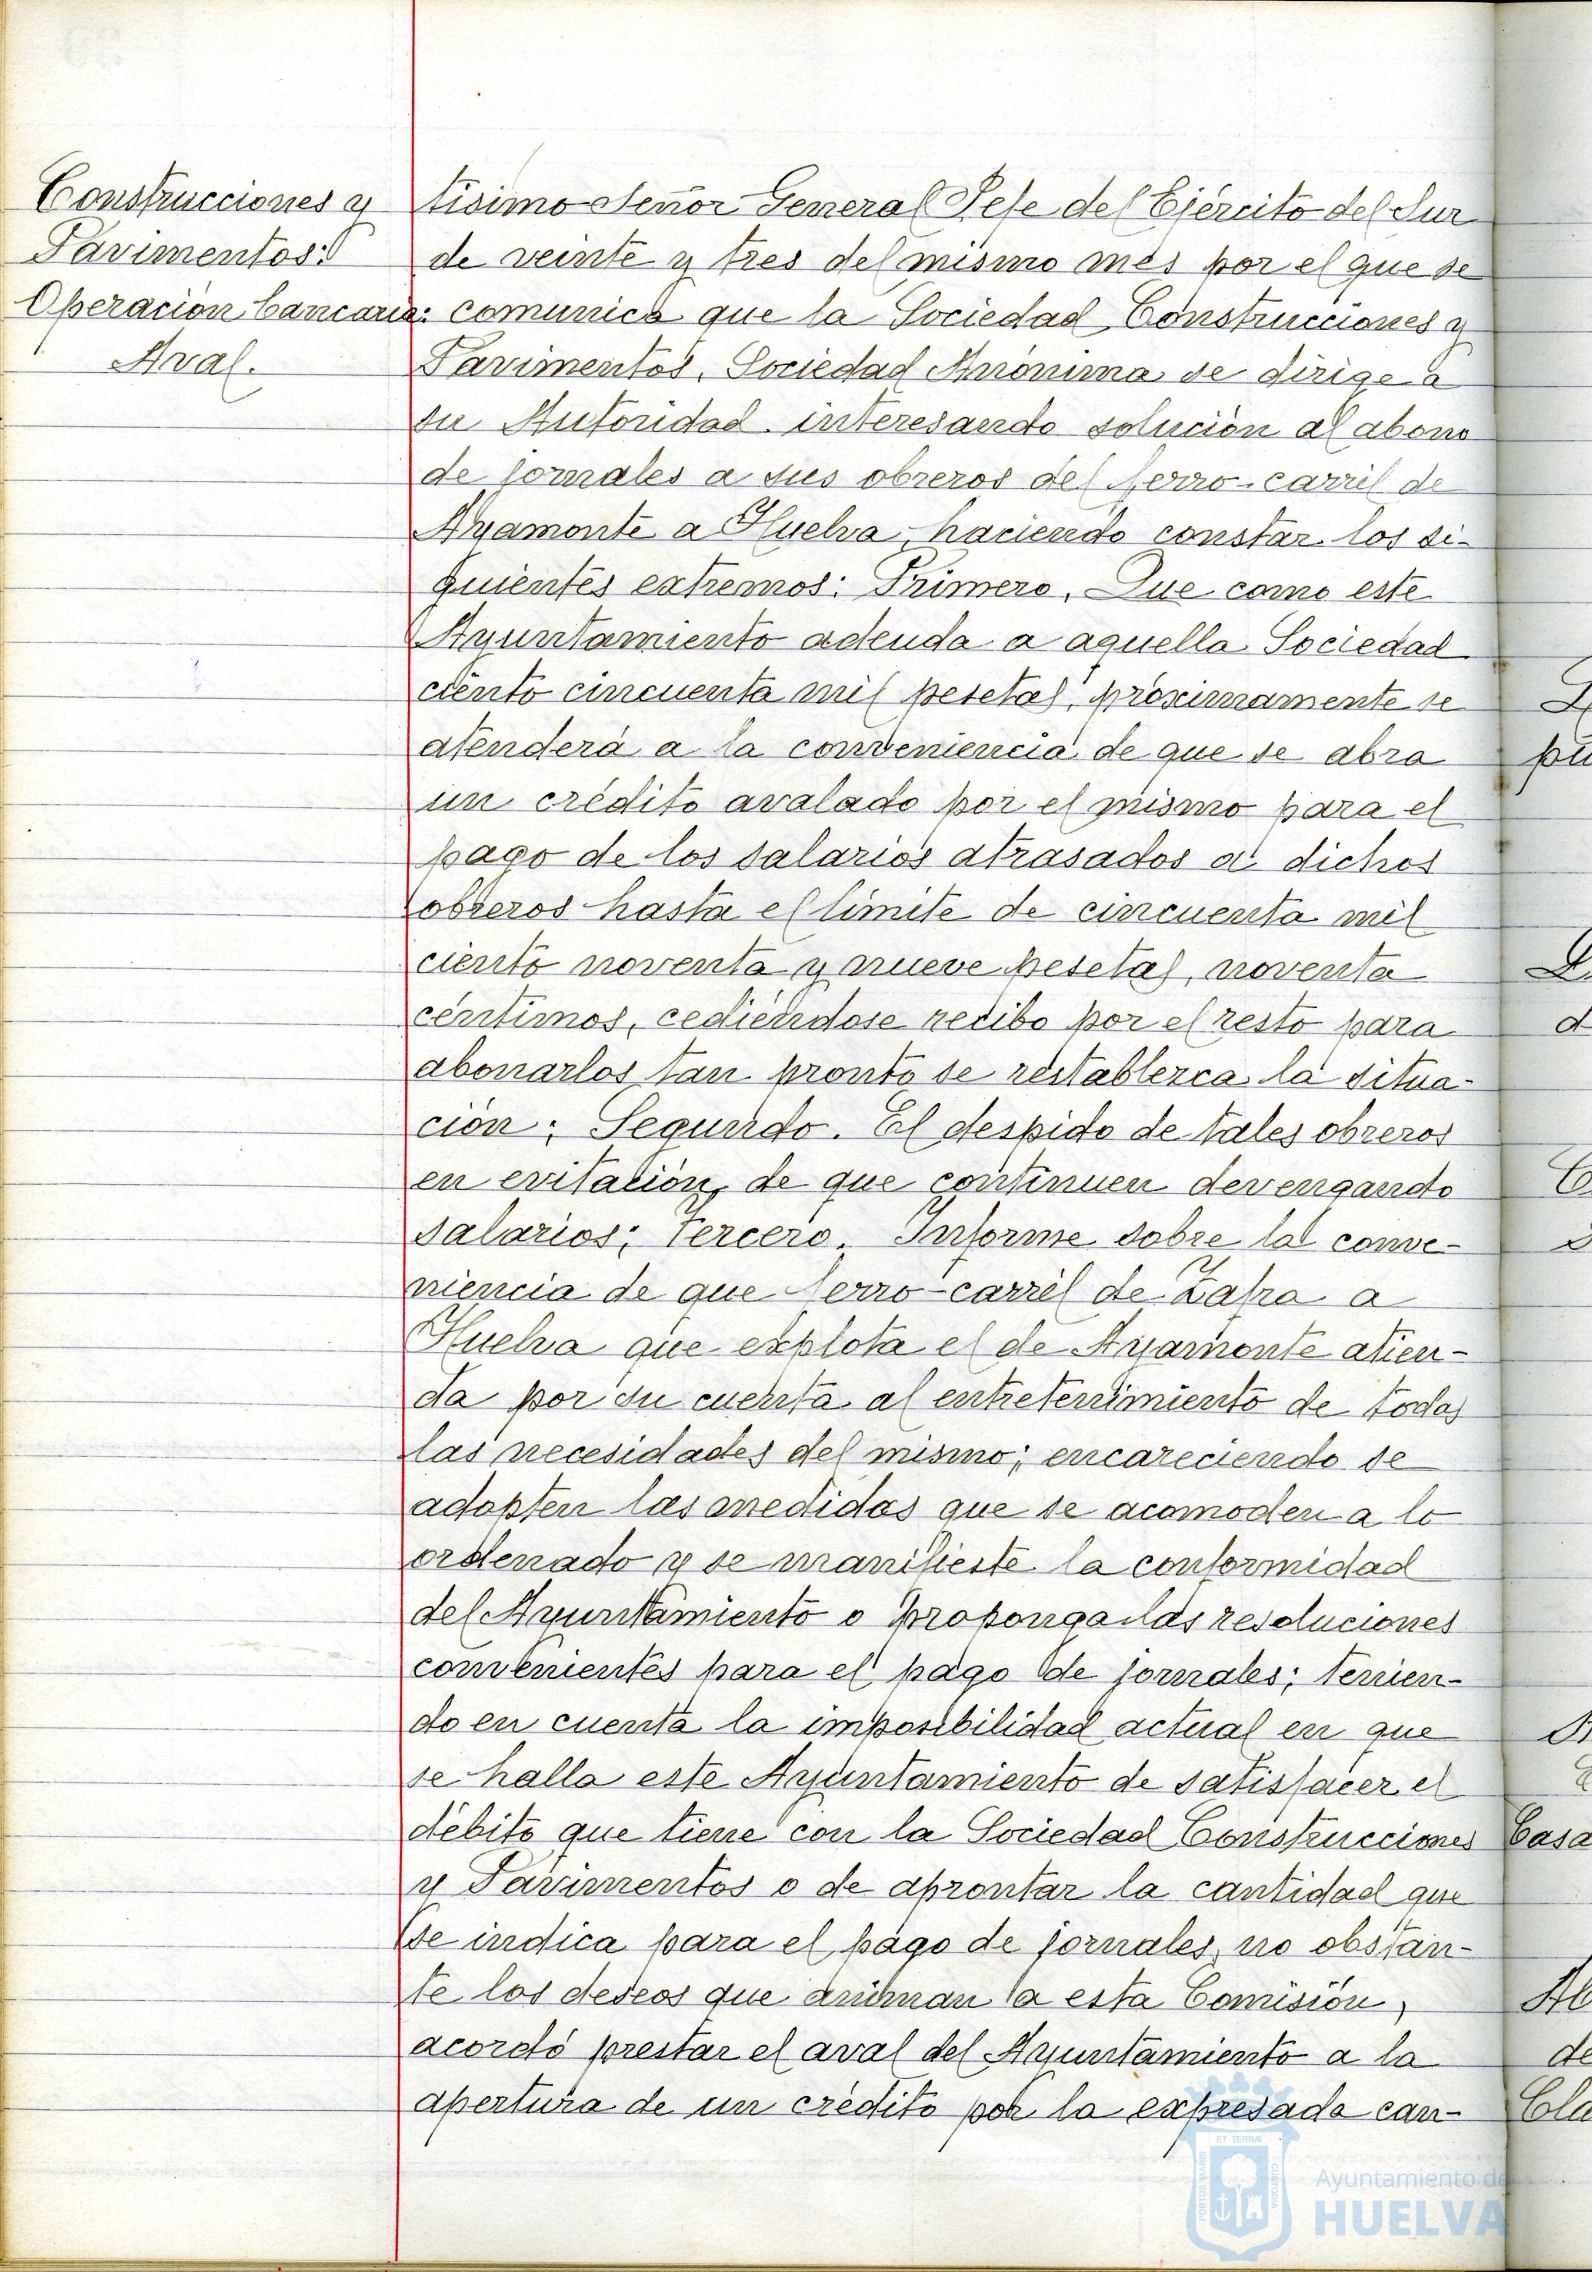 Construcciones y
Pavimentos:
Operación bancaria:
Aval.
tisimo Señor General Jefe del Ejército del Sur
de veinte y tres del mismo mes por el que se
comunica que la Sociedad Construcciones y
Pavimentos, Sociedad Anónima se dirige a
su Autoridad interesando solución al abono
de jornales a sus obreros del ferro-carril de
Ayamonte a Huelva, haciendo constar los si-
guientes extremos: Primero. Que como este
Ayuntamiento adeuda a aquella Sociedad
ciento cincuenta mil pesetas, próximamente se
atenderá a la conveniencia de que se abra
un crédito avalado por el mismo para el
pago de los salarios atrasados a dichos
obreros hasta el límite de cincuenta mil
ciento noventa y nueve pesetas, noventa
céntimos, cediéndose recibo por el resto para
abonarlos tan pronto se restablezca la situa-
ción; Segundo. El despido de tales obreros
en evitación, de que continuen devengando
salarios; Tercero. Informe sobre la conve-
niencia de que ferro-carril de Zafra a
Huelva que explota el de Ayamonte atien-
da por su cuenta al entretenimiento de todas
las necesidades del mismo; encareciendo se
adopten las medidas que se acomoden a lo
ordenado y se manifieste la conformidad
del Ayuntamiento o proponga las resoluciones
convenientes para el pago de jornales; tenien-
do en cuenta la imposibilidad actual en que
se halla este Ayuntamiento de satisfacer el
débito que tiene con la Sociedad Construcciones
y Pavimentos o de aprontar la cantidad que
se indica para el pago de jornales, no obstan-
te los deseos que animan a esta Comisión,
acordó prestar el aval del Ayuntamiento a la
apertura de un crédito por la expresada can-
pu
d
Casa
de
Cla
ET TERRÆ
PORTUS MARIS
CUSTODIA
Ayuntamiento de
HUELVA